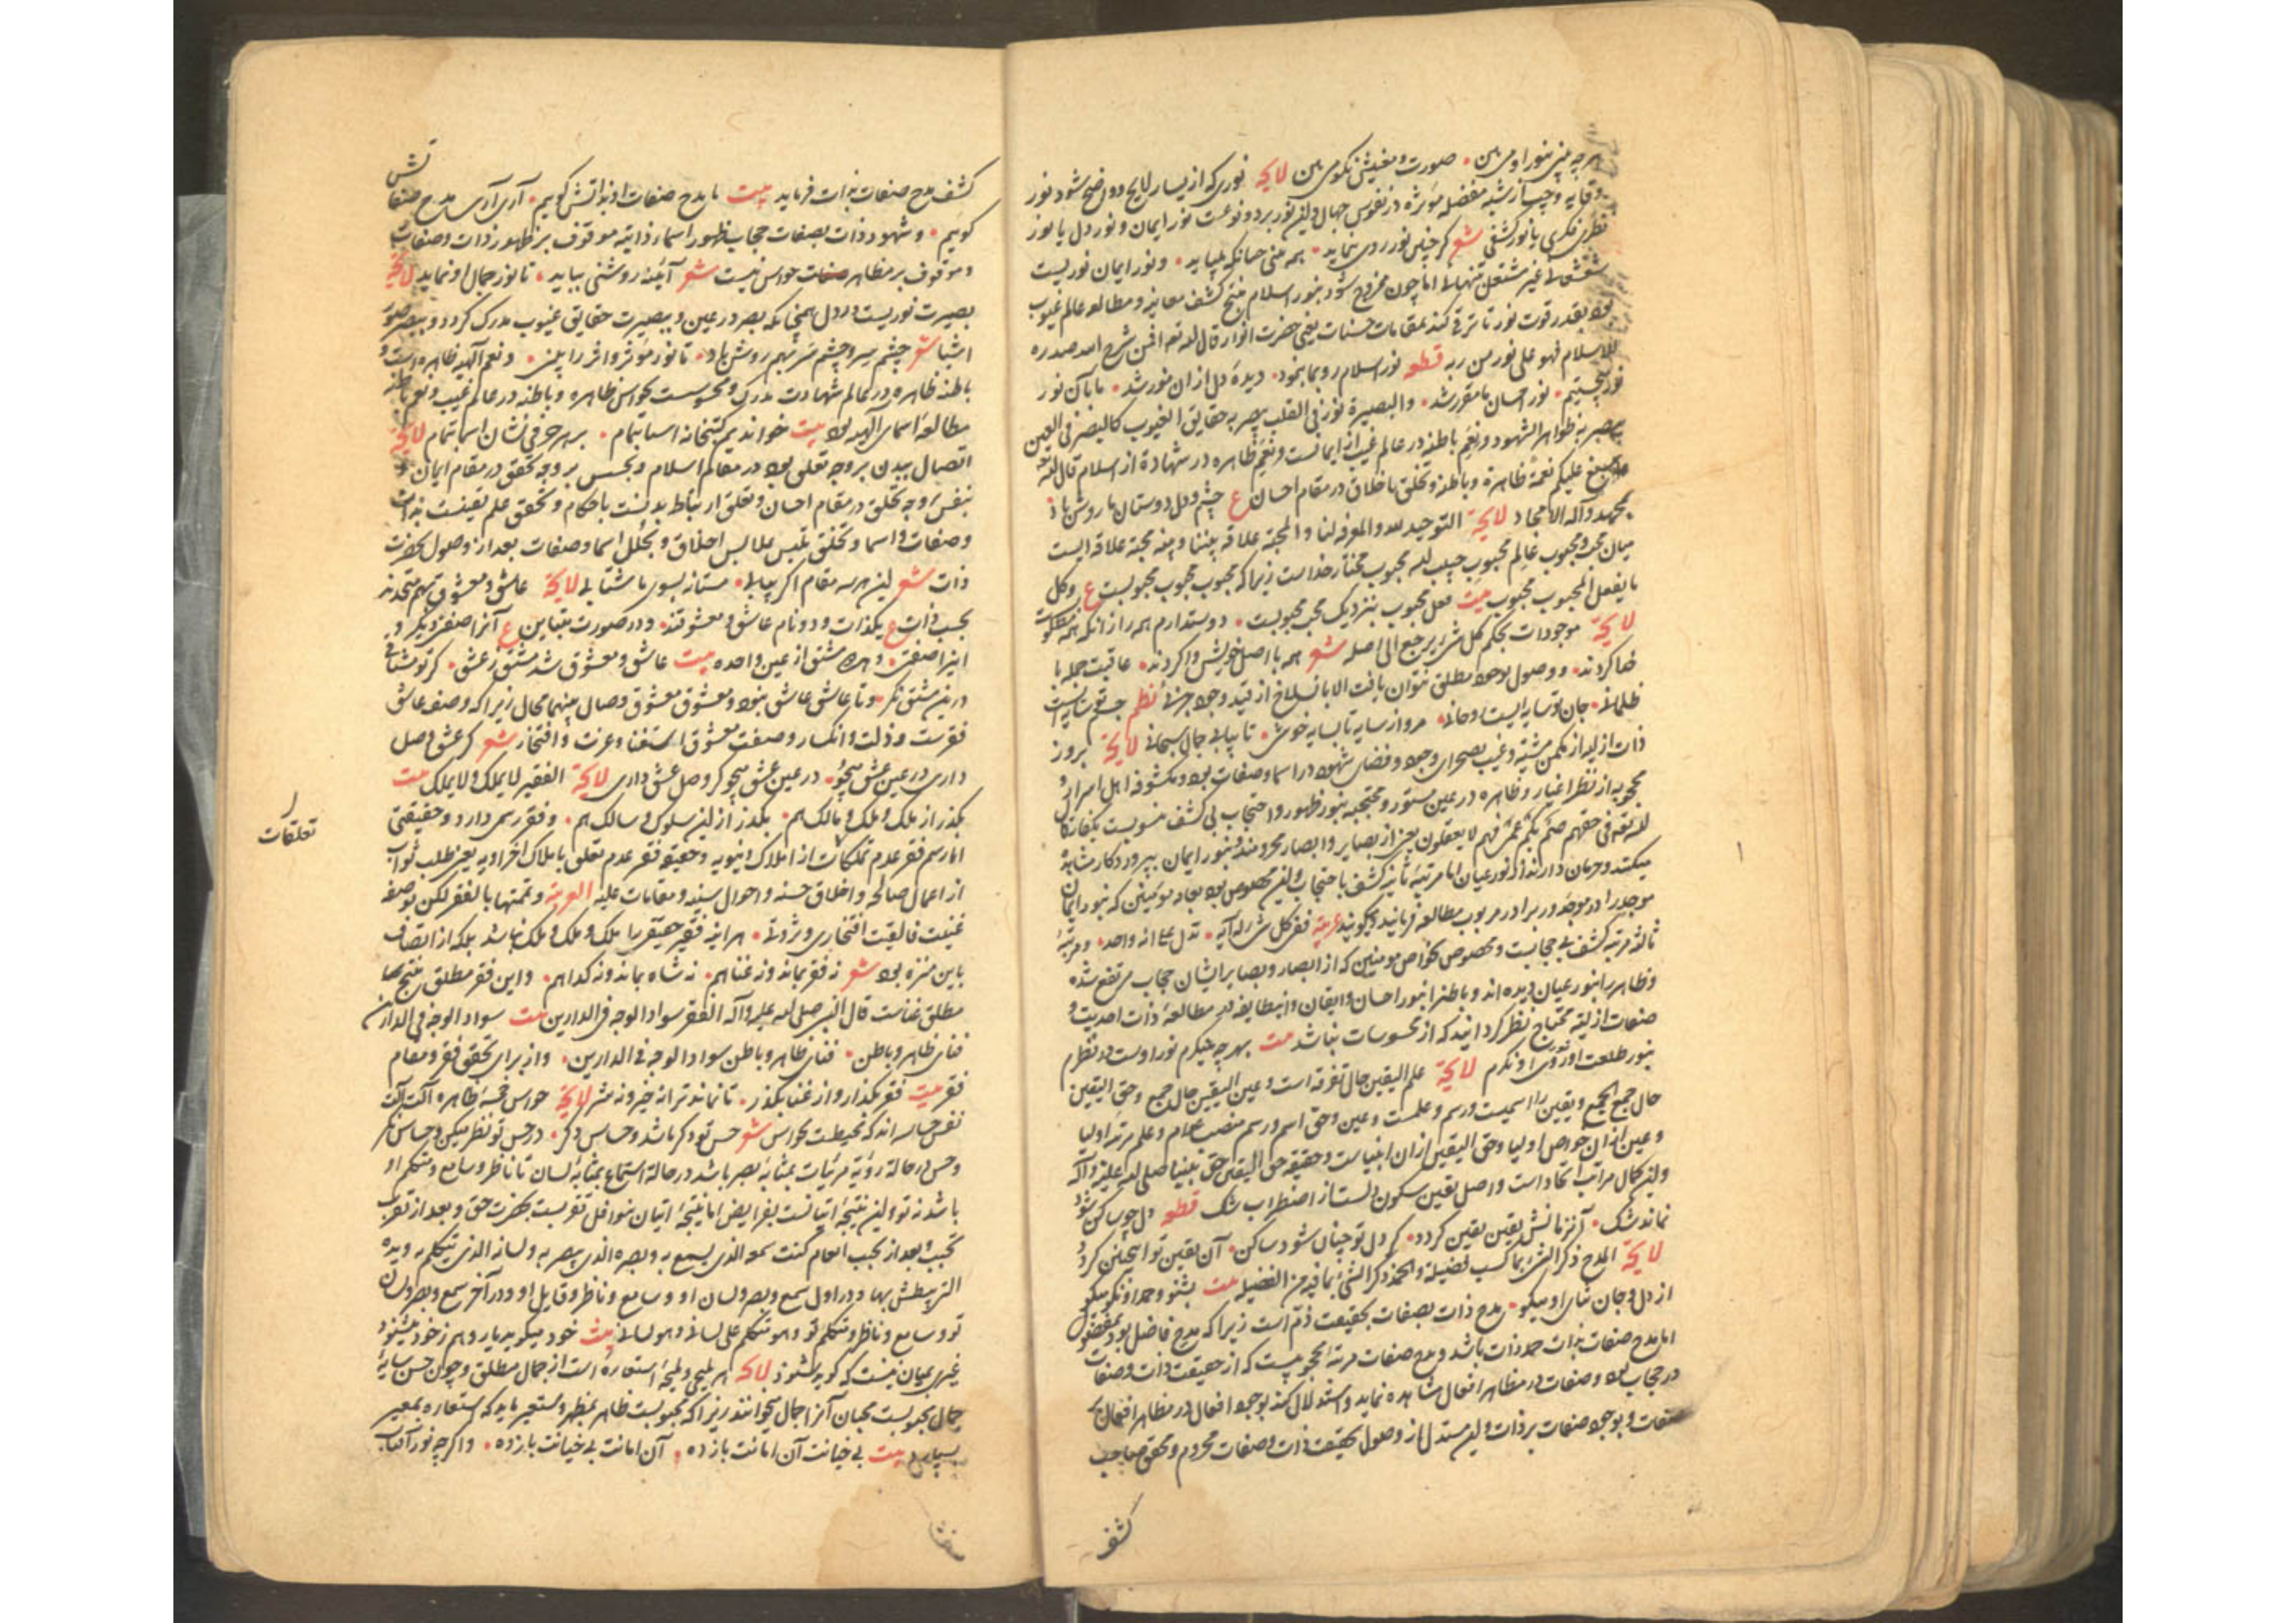 هرچه بینی بنور او می بین صورت و معنیش نکو می بین لایحه نوری که از یسار لایح و واضح شود نور
نظری فکری یا نور کشفی شعر کر چنین نور روی بنماید همه و نور ایمان نوریست
اما چون ممزوج شود بنور اسلام منتج کشف معاینه و مطالعه عالم غیوب
بود بقدر قوت نور تا ترقی کند بمقامات حسنات یعنی حضرت انوار قال الله تعالی افمن شرح الله صدره
للاسلام فهو علی نور من ربه قطعه نور اسلام رو بما بنمود دیده دل از ان منور شد ما بآن نور
نور احسان ما مقرر شد والبصیرة نور فی القلب یبصر به حقایق الغیوب کالبصر فی العین
یبصر به ظواهر الشهود و نعم باطنه در عالم غیب از ایمانست و نعم ظاهره در شهادة از اسلام قال الله تعه
و اسبغ علیکم نعمه ظاهرة و باطنة و تخلق باخلاق در مقام احسان ع چشم و دل دوستان ما روشن باد
بمحمد و آله الامجاد لایحه التوحید لله والمعرفة لنا والمحبة علاقة بیننا و بینه محبة علاقه ایست
میان محب و محبوب عالم محبوب حبیب الله محبوب مختار خداست زیرا که محبوب محبوب محبوبست ع وکل
ما یفعل المحبوب محبوب بیت فعل محبوب بنزدیک محب محبوبست دوستدارم همه را زانکه همه
لایحه موجودات بحکم کل شئ یرجع الی اصله شعر همه با اصل خویش وا کردند عاقبت جمله با
خدا کردند و وصول بوجود مطلق نتوان یافت الا بانسلاخ از قید وجود جزئی نظم جسم تو سایه ایست
ظلمانی جان تو سایه ایست روحانی مرو از سایه تا بسایه خوش تا بیابی جمال سبحانی لایحه بروز
ذات ازلیه از مکمن مشیة و غیب بصحرای وجود و فضای شهود در اسما و صفات بود و مکشوفه اهل اسرار و
محجوبه از نظر اغیار و ظاهره در عین مستور و محتجبه بنور ظهور و احتجاب بی کشف منسوبست بکفار کما
قال الله تعه فی حقهم صم بکم عمی فهم لا یعقلون یعنی از بصایر و ابصار محرومند و بنور ایمان
اما مرتبه ثانیه کشف با احتجاب و این مخصوص بود بعامه مؤمنین که بنور ایمان
موجد را در موجود و رب را در مربوب مطالعه فرمایند و کویند عربیة ففی کل شئ له آیه تدل علی انه واحد و مرتبه
ثالثه مرتبه کشف بی حجابست و مخصوص بخواص مومنین که از ابصار و بصایر ایشان حجاب مرتفع شده
و ظاهر را بنور عیان دیده اند و باطن را بنور احسان و ایقان مطالعه ذات احدیت و
صفات ازلیه محتاج نظر کردانیدند که از محسوسات نباشد بیت بهر چه میکرم نور اوست در نظرم
بنور طلعت او روی او نکرم لایحه علم الیقین حال تفرقه است و عین الیقین حال جمع و حق الیقین
حال جمع الجمع و یقین را اسمیست و رسم و علمست و عین و حق اسم و رسم منصب عوام و علم مرتبه اولیا
و عین از ان خواص اولیا و حق الیقین از ان انبیاست و حقیقة حق الیقین حق نبینا صلی الله علیه و آله
و این کمال مراتب اتحاد است و اصل یقین سکون دلست از اضطراب شک قطعه دل چو ساکن شود
نماند شک آن زمانش یقین یقین کردد کر دل تو چنان شود ساکن آن یقین تو این چنین کردد
لایحه المدح ذکر الشئ بما کسب فضیلة والحمد ذکر الشئ بما فیه من الفضیلة بیت بشنو و حمد او نکو میکو
از دل و جان ثنای او میکو مدح ذات بصفات بحقیقت ذم است زیرا که مدح فاضل بود بمفضول
اما مدح صفات بذات حمد ذات باشد و مدح صفات مرتبه محجوبیست که از حقیقت ذات و صفات
در حجاب بود و صفات در مظاهر افعال مشاهده نماید و استدلال کند بوجود افعال در مظاهر افعال بر
صفات و بوجود صفات بر ذات و این مستدل از وصول بحقیقت ذات و صفات محروم و محقق صاحب
کشف
کشف مدح صفات بذات فرماید بیت ما مدح صفات او بذاتش کویم آری آری مدح صفا تش
کویم و شهود ذات بصفات حجاب ظهور اسما ذاتیه موقوف بر ظهور ذات و صفات
و موقوف بر مظاهر حواس نیست شعر آینه روشنی بباید تا نور جمال او نماید لایحه
بصیرت نوریست در دل همچنانکه بصر در عین و ببصیرت حقایق غیوب مدرک کردد و ببصر صور
اشیا شعر چشم سر و چشم سر بهم روشن باد تا نور موثر و اثر را بینی و نعم الهیه ظاهره است و
باطنه ظاهره در عالم شهادت مدرک و محسوست بحواس ظاهره و باطنه در عالم غیب و نعم باطنه
مطالعه اسمای الهیه بود بیت خواندیم کتبخانه اسما بتمام بر هر حرفی نشان اسما بتمام لایحه
اتصال ببدن بر وجه تعلق بود در مقام اسلام و بحس بر وجه تحقق در مقام ایمان و
بنفس بر وجه تخلق در مقام احسان و تعلق ارتباط بدنست باحکام و تحقق علم یقینست بذات
و صفات و اسما و تخلق تلبس بملابس اخلاق و تخلل اسما و صفات بعد از وصول بحضرت
ذات شعر این هر سه مقام اکر بیابی مستانه بسوی ما شتابی لایحه عاشق و معشوق بهم متحدند
بحسب ذات ع یکذات و دو نام عاشق و معشوقند و در صورت متباین ع آنرا صفتی دیکر و
اینرا صفتی و هر دو مشتق از عین واحده بیت عاشق و معشوق شد مشتق ز عشق کر تو مشتاقی
درین مشتق نکر و تا عاشق عاشق بود و معشوق معشوق وصال بینهما محال زیرا که وصف عاشق
فقرست و ذلت و انکسار و صفت معشوق استغنا و عزت و افتخار شعر کر عشق وصل
داری در عین عشق میجو در عین عشق میجو کر وصل عشق داری لایحه الفقیر لا یملک و لا یملک بیت
بکذر از ملک و ملک و مالک هم بکذر از این سلوک و سالک هم و فقر رسمی دارد و حقیقتی
اما رسم فقر عدم تملکات از املاک دنیویه و حقیقة فقر عدم تعلق باملاک اخراویه یعنی طلب ثواب
تعلقات
از اعمال صالحه و اخلاق حسنه و احوال سنیه و مقامات علیه العربیة و تمتها بالفقر لکن بوصفه
غنیت فالقیت افتخاری و ثروتی هر اینه فقیر حقیقی را ملک و ملک و ملک نباشد بلکه از اتصاف
باین منزه بود شعر نه فقر بماند و نه غنا هم نه شاه بماند و نه کدا هم و این فقر مطلق منتج
مطلق غناست قال النبی صلی الله علیه و آله الفقر سواد الوجه فی الدارین بیت سواد الوجه فی الدارین
فنای ظاهر و باطن فنای ظاهر و باطن سواد الوجه فی الدارین و از برای تحقق فقر و مقام
فقر بیت فقر بکذار و از غنا بکذر تا نماند ترا نه خیر و نه شر لایحه حواس خمسه ظاهره آلت
نفس حساسه اند که محیطست بحواس شعر حس تو دکر باشد و حساس دکر در حس تو نظر میکن و حساس نکر
و حس در حالة رؤیة مرئیات بمثابه بصر باشد در حالة استماع بمثابه لسان تا ناظر و سامع و متکلم او
باشد نه تو و این نتیجه اتیانست بفرایض اما نتیجه اتیان بنوافل تقربست بحضرت حق و بعد از تقرب
تحبب و بعد از تحبب انعام کنت سمعه الذی یسمع به و بصره الذی یبصر به و لسانه الذی یتکلم به و یده
التی یبطش بها و در اول سمع و بصر و لسان او و سامع و ناظر و قایل او و در آخر سمع و بصر و لسان
تو و سامع و ناظر و متکلم تو و هو متکلم علی لسانی و هو لسانی بیت خود میکوید یار و هم ز خود میشنود
غیری بمیان نیست که کوید شنود لایحه هر ملیحی و ملیحه استعاره است از جمال مطلق و چون حسن سایه
جمال محبوبست محبان آنرا جمال میخوانند زیرا که محبوبست ظاهر بمظهر و مستعیر باید که استعاره بمعیر
بسپارد بیت بی خیانت آن امانت باز ده آن امانت بی خیانت باز ده و اکرچه نور آفتاب